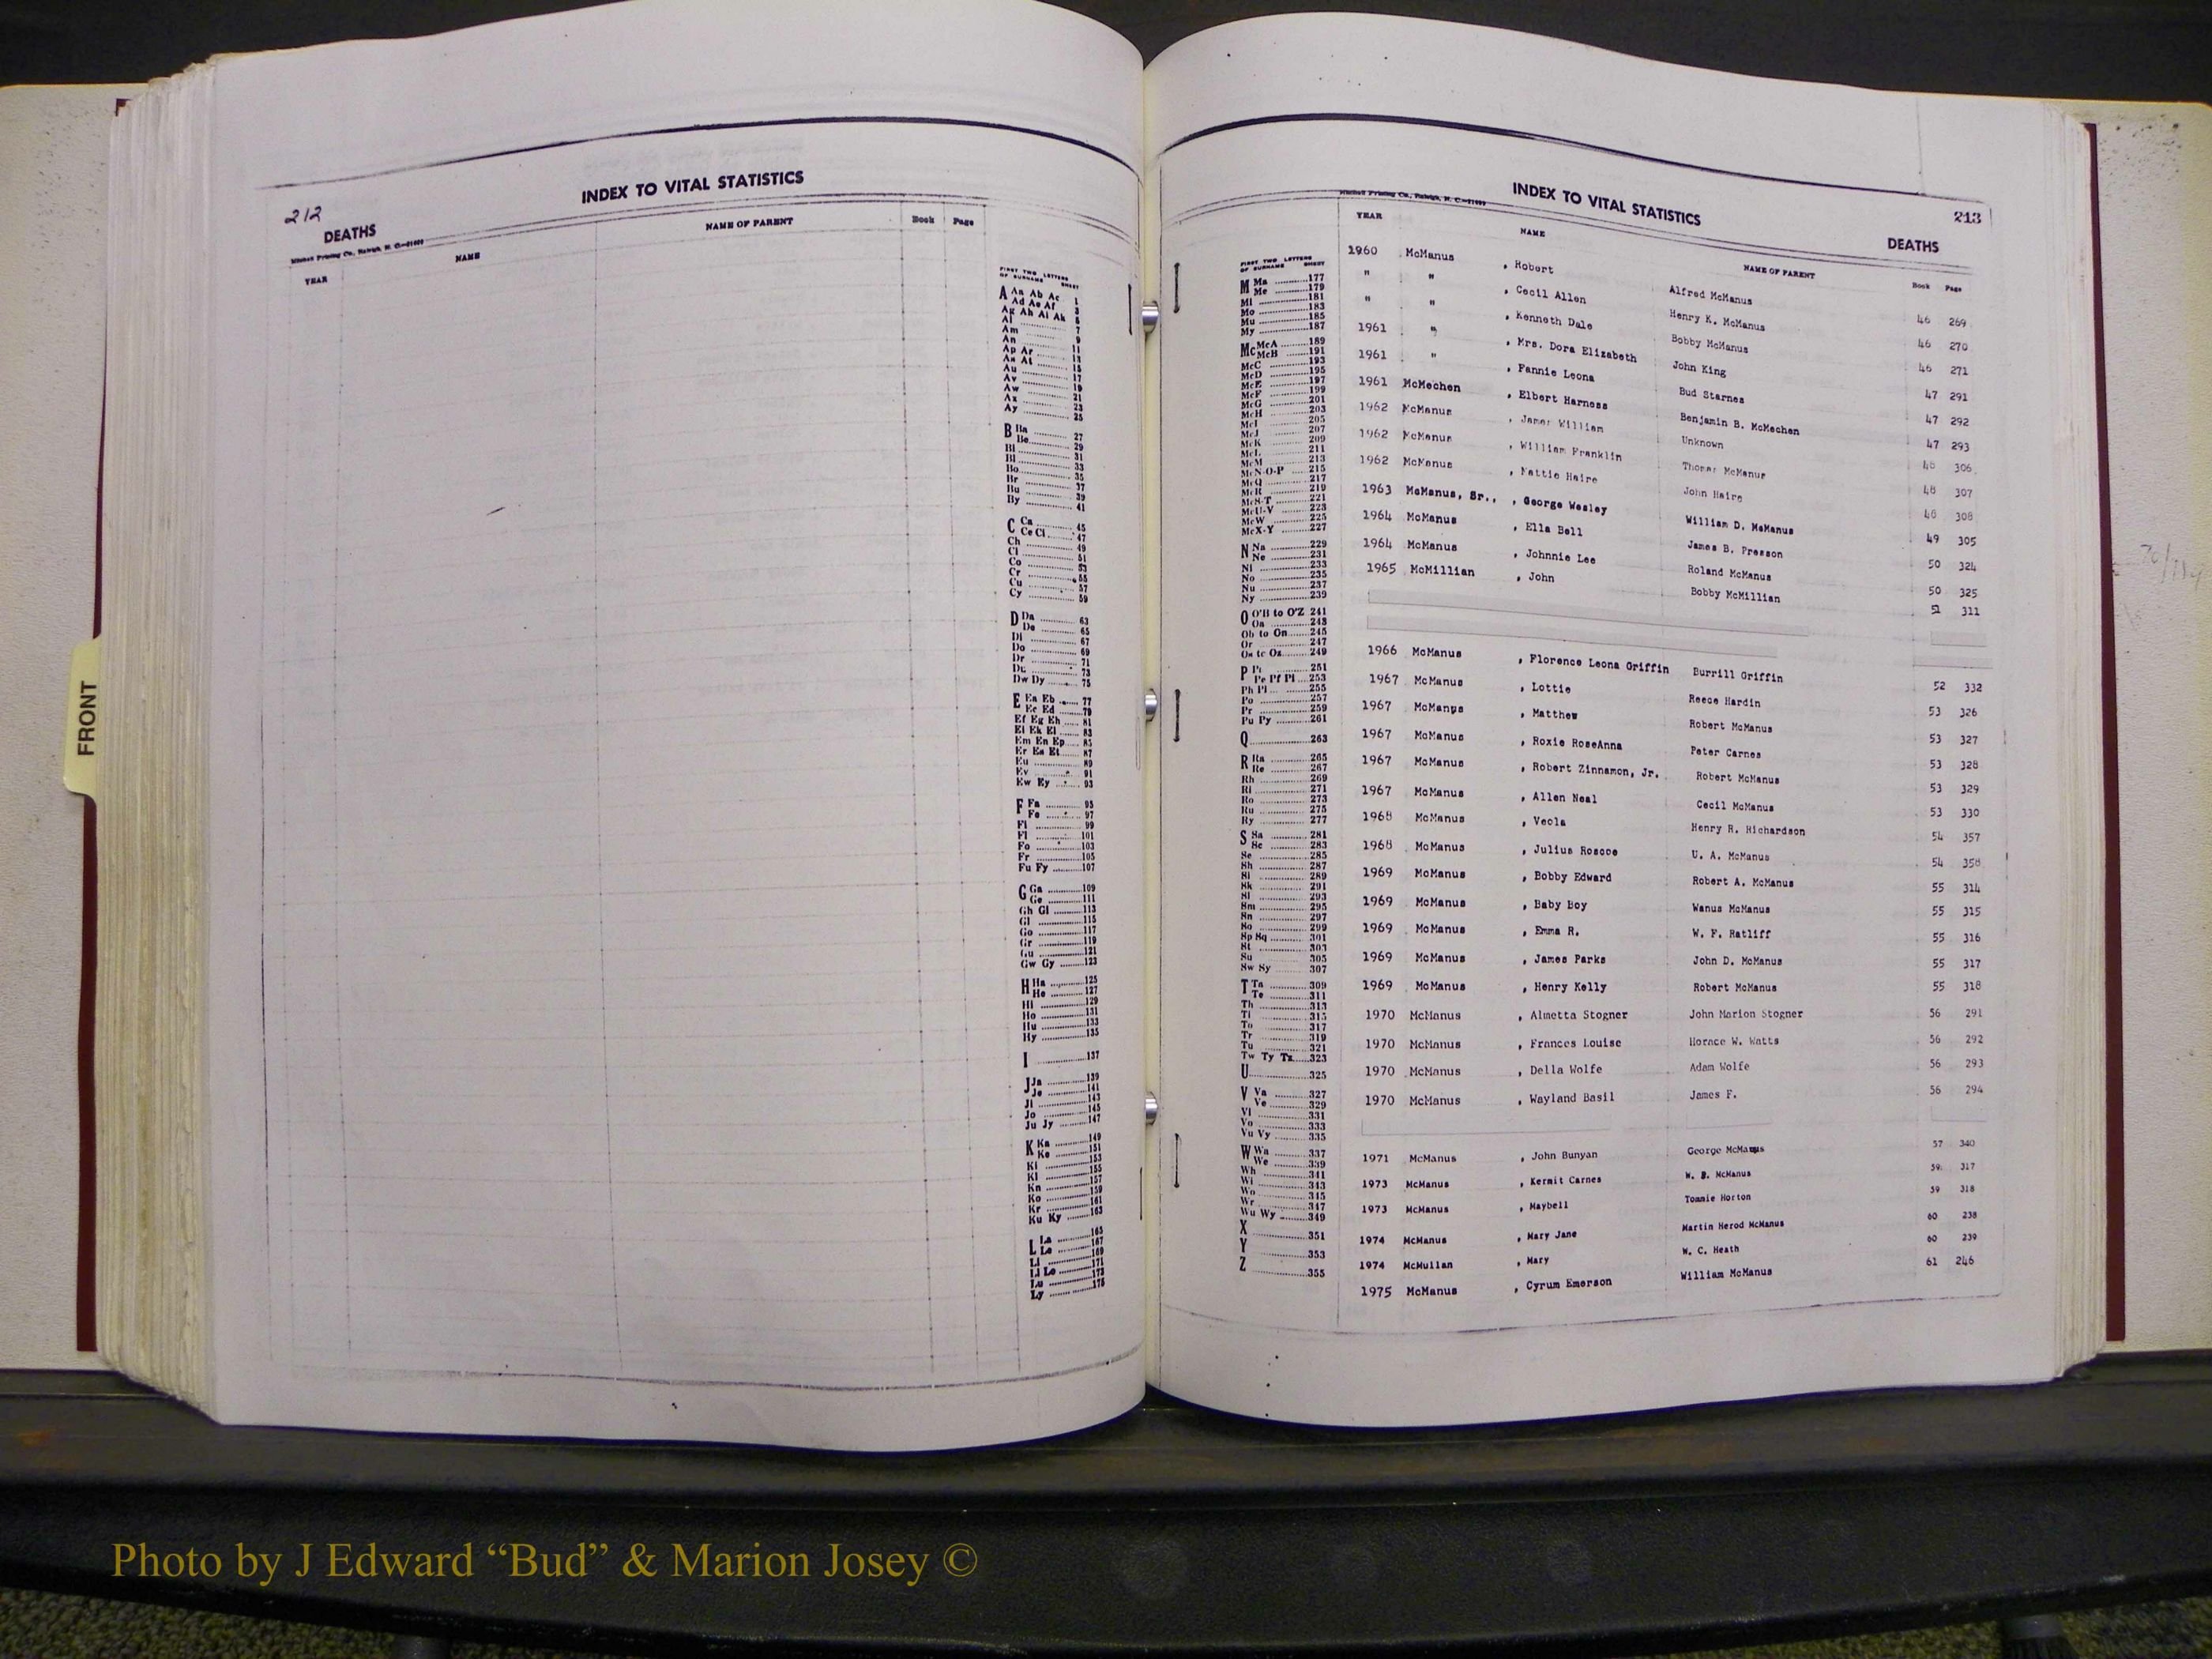 212
INDEX TO VITAL STATISTICS
DEATHS
Mitchell Printing Co., Raleigh, N. C.
YEAR NAME NAME OF PARENT Book Page
FIRST TWO LETTERS
OF SURNAME SHEET
A Aa Ab Ac 1
Ad Ae Af 3
Ag Ah Ai Ak 5
Al 7
Am 9
An 11
Ap Ar 13
As At 15
Au 17
Av 19
Aw 21
Ax 23
Ay 25
B Ba 27
Be 29
Bi 31
Bl 33
Bo 35
Br 37
Bu 39
By 41
C Ca 45
Ce Ci 47
Ch 49
Cl 51
Co 53
Cr 55
Cu 57
Cy 59
D Da 63
De 65
Di 67
Do 69
Dr 71
Du 73
Dw Dy 75
E Ea Eb 77
Ec Ed 79
Ef Eg Eh 81
Ei Ek El 83
Em En Ep 85
Er Es Et 87
Eu 89
Ev 91
Ew Ey 93
F Fa 95
Fe 97
Fi 99
Fl 101
Fo 103
Fr 105
Fu Fy 107
G Ga 109
Ge 111
Gh Gi 113
Gl 115
Go 117
Gr 119
Gu 121
Gw Gy 123
H Ha 125
He 127
Hi 129
Ho 131
Hu 133
Hy 135
I 137
J Ja 139
Je 141
Ji 143
Jo 145
Ju Jy 147
K Ka 149
Ke 151
Ki 153
Kl 155
Kn 157
Ko 159
Kr 161
Ku Ky 163
L La 165
Le 167
Li 169
Ll Lo 171
Lu 173
Ly 175
FRONT
INDEX TO VITAL STATISTICS
213
DEATHS
Mitchell Printing Co., Raleigh, N. C.
YEAR NAME NAME OF PARENT Book Page
FIRST TWO LETTERS
OF SURNAME SHEET
M Ma 177
Me 179
Mi 181
Mo 183
Mu 185
My 187
Mc McA 189
McB 191
McC 193
McD 195
McE 197
McF 199
McG 201
McH 203
McI 205
McJ 207
McK 209
McL 211
McM 213
McN-O-P 215
McQ 217
McR 219
McS-T 221
McU-V 223
McW 225
McX-Y 227
N Na 229
Ne 231
Ni 233
No 235
Nu 237
Ny 239
O O'B to O'Z 241
Oa 243
Ob to On 245
Or 247
Os to Oz 249
P Pa 251
Pe Pf Pl 253
Ph Pl 255
Po 257
Pr 259
Pu Py 261
Q 263
R Ra 265
Re 267
Rh 269
Ri 271
Ro 273
Ru 275
Ry 277
S Sa 281
Sc 283
Se 285
Sh 287
Si 289
Sk 291
Sl 293
Sm 295
Sn 297
So 299
Sp Sq 301
St 303
Su 305
Sw Sy 307
T Ta 309
Te 311
Th 313
Ti 315
To 317
Tr 319
Tu 321
Tw Ty Tz 323
U 325
V Va 327
Ve 329
Vi 331
Vo 333
Vu Vy 335
W Wa 337
We 339
Wh 341
Wi 343
Wo 345
Wr 347
Wu Wy 349
X 351
Y 353
Z 355
1960 McManus , Robert Alfred McManus 46 269
" " , Cecil Allen Henry K. McManus 46 270
" " , Kenneth Dale Bobby McManus 46 271
1961 " , Mrs. Dora Elizabeth John King 47 291
1961 " , Fannie Leona Bud Starnes 47 292
1961 McMechen , Elbert Harness Benjamin B. McMechen 47 293
1962 McManus , James William Unknown 48 306
1962 McManus , William Franklin Thomas McManus 48 307
1962 McManus , Nattie Haire John Haire 48 308
1963 McManus, Sr., , George Wesley William D. McManus 49 305
1964 McManus , Ella Bell James B. Presson 50 324
1964 McManus , Johnnie Lee Roland McManus 50 325
1965 McMillian , John Bobby McMillian 51 311
1966 McManus , Florence Leona Griffin Burrill Griffin 52 332
1967 McManus , Lottie Reece Hardin 53 326
1967 McManus , Matthew Robert McManus 53 327
1967 McManus , Roxie RoseAnna Peter Carnes 53 328
1967 McManus , Robert Zinnamon, Jr. Robert McManus 53 329
1967 McManus , Allen Neal Cecil McManus 53 330
1968 McManus , Veola Henry R. Richardson 54 357
1968 McManus , Julius Roscoe U. A. McManus 54 358
1969 McManus , Bobby Edward Robert A. McManus 55 314
1969 McManus , Baby Boy Wanus McManus 55 315
1969 McManus , Emma R. W. F. Ratliff 55 316
1969 McManus , James Parks John D. McManus 55 317
1969 McManus , Henry Kelly Robert McManus 55 318
1970 McManus , Almetta Stogner John Marion Stogner 56 291
1970 McManus , Frances Louise Horace W. Watts 56 292
1970 McManus , Della Wolfe Adam Wolfe 56 293
1970 McManus , Wayland Basil James F. 56 294
1971 McManus , John Bunyan George McManus 57 340
1973 McManus , Kermit Carnes W. B. McManus 59 317
1973 McManus , Maybell Tommie Horton 59 318
1974 McManus , Mary Jane Martin Herod McManus 60 238
1974 McMullan , Mary W. C. Heath 60 239
1975 McManus , Cyrum Emerson William McManus 61 246
Photo by J Edward “Bud” & Marion Josey ©